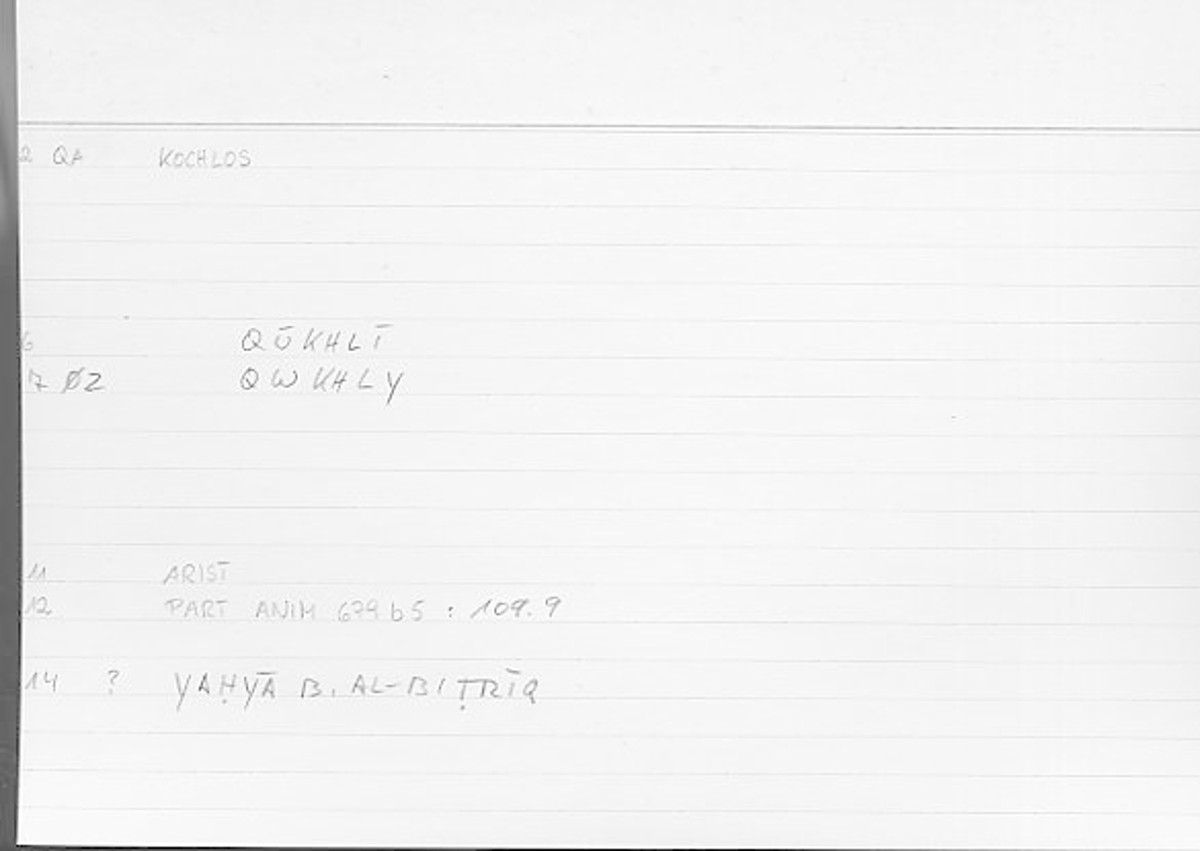 2 QA KOCHLOS
6 QŪKHLĪ
7 Ø2 QWKHLY
11 ARIST
12 PART ANIM 679 b 5 : 109.9
14 ? YAḤYĀ B. AL-BIṬRĪQ